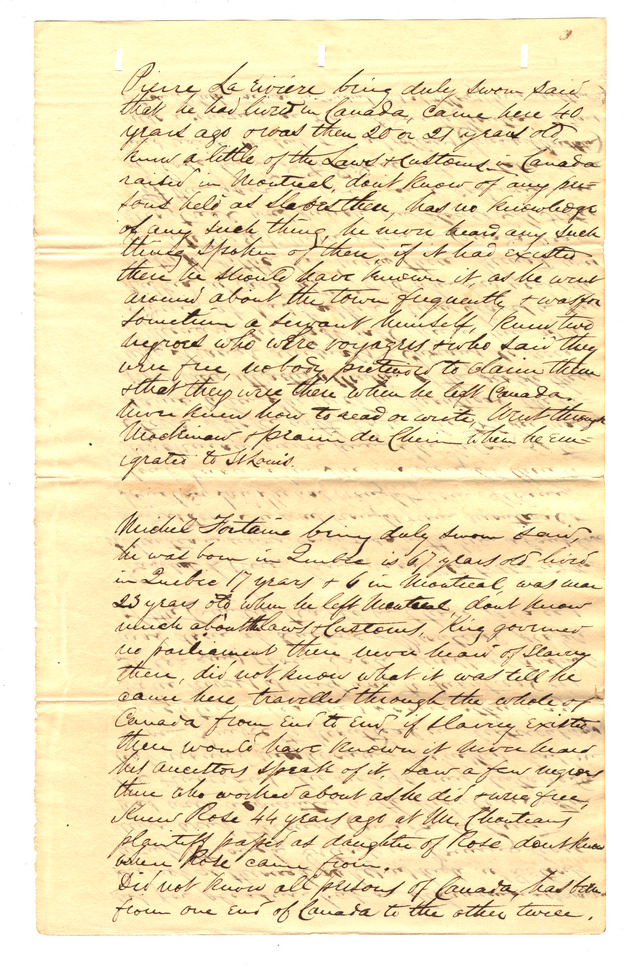 3
Pierre La Riviére being duly sworn said
that he had lived in Canada, came here 40
years ago & was then 20 or 21 years old
knew a little of the Laws & Customs in Canada
raised in Montreal, dont know of any per-
sons held as slaves then, has no knowledge
of any such thing, he never heard any such
thing spoken of then, if it had existed
there he should have known it, as he went
around about the town frequently & was for
sometim a servant himself, knew two
negroes who were voyagers & who said they
were free, nobody pretended to claim them
& that they were there when he left Canada.
Never knew how to read or write, Went through
Mackinaw & prairie du Chein when he em-
igrated to St Louis.
Michel Fortaine being duly sworn said
he was born in Quebec is 67 years old lived
in Quebec 17 years & 6 in Montreal, was near
23 years old when he left Montreal dont know
much about the laws & Customs, King governed
no parliament then never heard of Slavery
there, did not know what it was till he
came here, travelled through the whole of
Canada from End to End, if slavery existed
there would have known it never heard
his ancestors speak of it, saw a few negroes
there who worked about as he did & were free,
Knew Rose 44 years ago at Mr Chouteau's
plaintiff passes as daughter of Rose dont know
where Rose came from.
Did not know all persons of Canada, has been
from one End of Canada to the other twice.